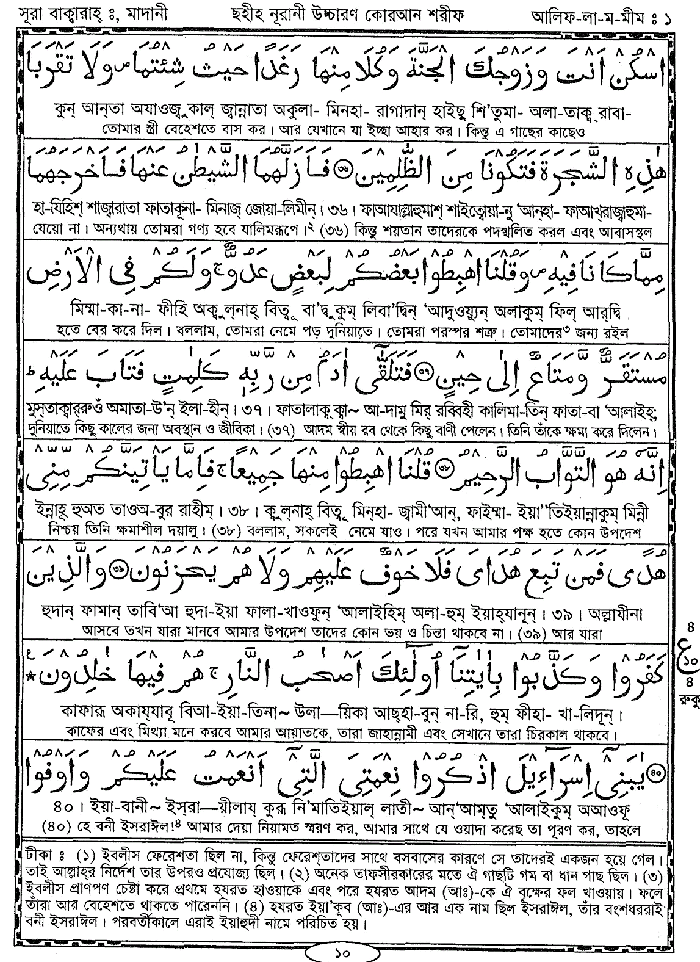 সূরা বাক্বারাহ্ ঃ, মাদানী ছহীহ্ নূরানী উচ্চারণ কোরআন শরীফ আলিফ-লা-ম-মীম ঃ ১
اسْكُنْ اَنْتَ وَزَوْجُكَ الْجَنَّةَ وَكُلَا مِنْهَا رَغَدًا حَيْثُ شِئْتُمَا ص وَلَا تَقْرَبَا
কুন্ আন্তা অযাওজু কাল্ জ্বান্নাতা অকুলা- মিনহা- রাগাদান্ হাইছু শি'তুমা- অলা-তাক্ব্ রাবা-
তোমার স্ত্রী বেহেশতে বাস কর। আর যেখানে যা ইচ্ছা আহার কর। কিন্তু এ গাছের কাছেও
هٰذِهِ الشَّجَرَةَ فَتَكُوْنَا مِنَ الظّٰلِمِيْنَ ۝৩৫ فَاَزَلَّهُمَا الشَّيْطٰنُ عَنْهَا فَاَخْرَجَهُمَا
হা-যিহিশ্ শাজ্বারাতা ফাতাকূনা- মিনাজ্ জোয়া-লিমীন্। ৩৬। ফাআযাল্লাহুমাশ্ শাইত্বোয়া-নু 'আন্হা- ফাআখ্রাজ্বাহুমা-
যেয়ো না। অন্যথায় তোমরা গণ্য হবে যালিমরূপে।২ (৩৬) কিন্তু শয়তান তাদেরকে পদস্খলিত করল এবং আবাসস্থল
مِمَّا كَانَا فِيْهِ ص وَقُلْنَا اهْبِطُوْا بَعْضُكُمْ لِبَعْضٍ عَدُوٌّ ج وَلَكُمْ فِى الْاَرْضِ
মিম্মা-কা-না- ফীহি অক্বুল্নাহ্ বিত্বূ বা'দ্বুকুম্ লিবা'দ্বিন্ 'আদুওয়্যুন্ অলাকুম্ ফিল্ আর্দ্বি
হতে বের করে দিল। বললাম, তোমরা নেমে পড় দুনিয়াতে। তোমরা পরস্পর শত্রু। তোমাদের৩ জন্য রইল
مُسْتَقَرٌّ وَّمَتَاعٌ اِلٰى حِيْنٍ ۝৩৬ فَتَلَقّٰى اٰدَمُ مِنْ رَّبِّهٖ كَلِمٰتٍ فَتَابَ عَلَيْهِ ط
মুস্তাক্বার্রুওঁ অমাতা-উ'ন্ ইলা-হীন্। ৩৭। ফাতালাক্ব্ ক্বা~ আ-দামু মির্ রব্বিহী কালিমা-তিন্ ফাতা-বা 'আলাইহ্;
দুনিয়াতে কিছু কালের জন্য অবস্থান ও জীবিকা। (৩৭) আদম স্বীয় রব থেকে কিছু বাণী পেলেন। তিনি তাঁকে ক্ষমা করে দিলেন।
اِنَّهٗ هُوَ التَّوَّابُ الرَّحِيْمُ ۝৩৭ قُلْنَا اهْبِطُوْا مِنْهَا جَمِيْعًا ج فَاِمَّا يَاْتِيَنَّكُمْ مِّنِّىْ
ইন্নাহূ হুঅত তাওঅ-বুর রাহীম্। ৩৮। ক্বুল্নাহ্ বিত্বূ মিন্হা- জ্বামী'আন্, ফাইম্মা- ইয়া''তিইয়ান্নাকুম্ মিন্নী
নিশ্চয় তিনি ক্ষমাশীল দয়ালু। (৩৮) বললাম, সকলেই নেমে যাও। পরে যখন আমার পক্ষ হতে কোন উপদেশ
هُدًى فَمَنْ تَبِعَ هُدَاىَ فَلَا خَوْفٌ عَلَيْهِمْ وَلَا هُمْ يَحْزَنُوْنَ ۝৩৮ وَالَّذِيْنَ
হুদান্ ফামান্ তাবি'আ হুদা-ইয়া ফালা-খাওফুন্ 'আলাইহিম্ অলা-হুম্ ইয়াহ্যানূন্। ৩৯। অল্লাযীনা
আসবে তখন যারা মানবে আমার উপদেশ তাদের কোন ভয় ও চিন্তা থাকবে না। (৩৯) আর যারা
كَفَرُوْا وَكَذَّبُوْا بِاٰيٰتِنَآ اُولٰٓئِكَ اَصْحٰبُ النَّارِ ج هُمْ فِيْهَا خٰلِدُوْنَ ★ ع
কাফারূ অকায্যাবূ বিআ-ইয়া-তিনা~ উলা—য়িকা আছ্হা-বুন্ না-রি, হুম্ ফীহা- খা-লিদূন্।
কাফের এবং মিথ্যা মনে করবে আমার আয়াতকে, তারা জাহান্নামী এবং সেখানে তারা চিরকাল থাকবে।
৪
ع
১০
৪
রুকু
۝৪০ يٰبَنِىْٓ اِسْرَآءِيْلَ اذْكُرُوْا نِعْمَتِىَ الَّتِىْٓ اَنْعَمْتُ عَلَيْكُمْ وَاَوْفُوْا
৪০। ইয়া-বানী~ ইস্রা—য়ীলায্ কুরূ নি'মাতিইয়াল্ লাতী~ আন্'আম্তু 'আলাইকুম্ অআওফূ
(৪০) হে বনী ইসরাঈল!৪ আমার দেয়া নিয়ামত স্মরণ কর, আমার সাথে যে ওয়াদা করেছ তা পূরণ কর, তাহলে
টীকা ঃ (১) ইবলীস ফেরেশতা ছিল না, কিন্তু ফেরেশ্তাদের সাথে বসবাসের কারণে সে তাদেরই একজন হয়ে গেল।
তাই আল্লাহ্র নির্দেশ তার উপরও প্রযোজ্য ছিল। (২) অনেক তাফসীরকারের মতে ঐ গাছটি গম বা ধান গাছ ছিল। (৩)
ইবলীস প্রাণপণ চেষ্টা করে প্রথমে হযরত হাওয়াকে এবং পরে হযরত আদম (আঃ)-কে ঐ বৃক্ষের ফল খাওয়ায়। ফলে
তাঁরা আর বেহেশতে থাকতে পারেননি। (৪) হযরত ইয়া'কূব (আঃ)-এর আর এক নাম ছিল ইসরাঈল, তাঁর বংশধররাই
বনী ইসরাঈল। পরবর্তীকালে এরাই ইয়াহুদী নামে পরিচিত হয়।
১০